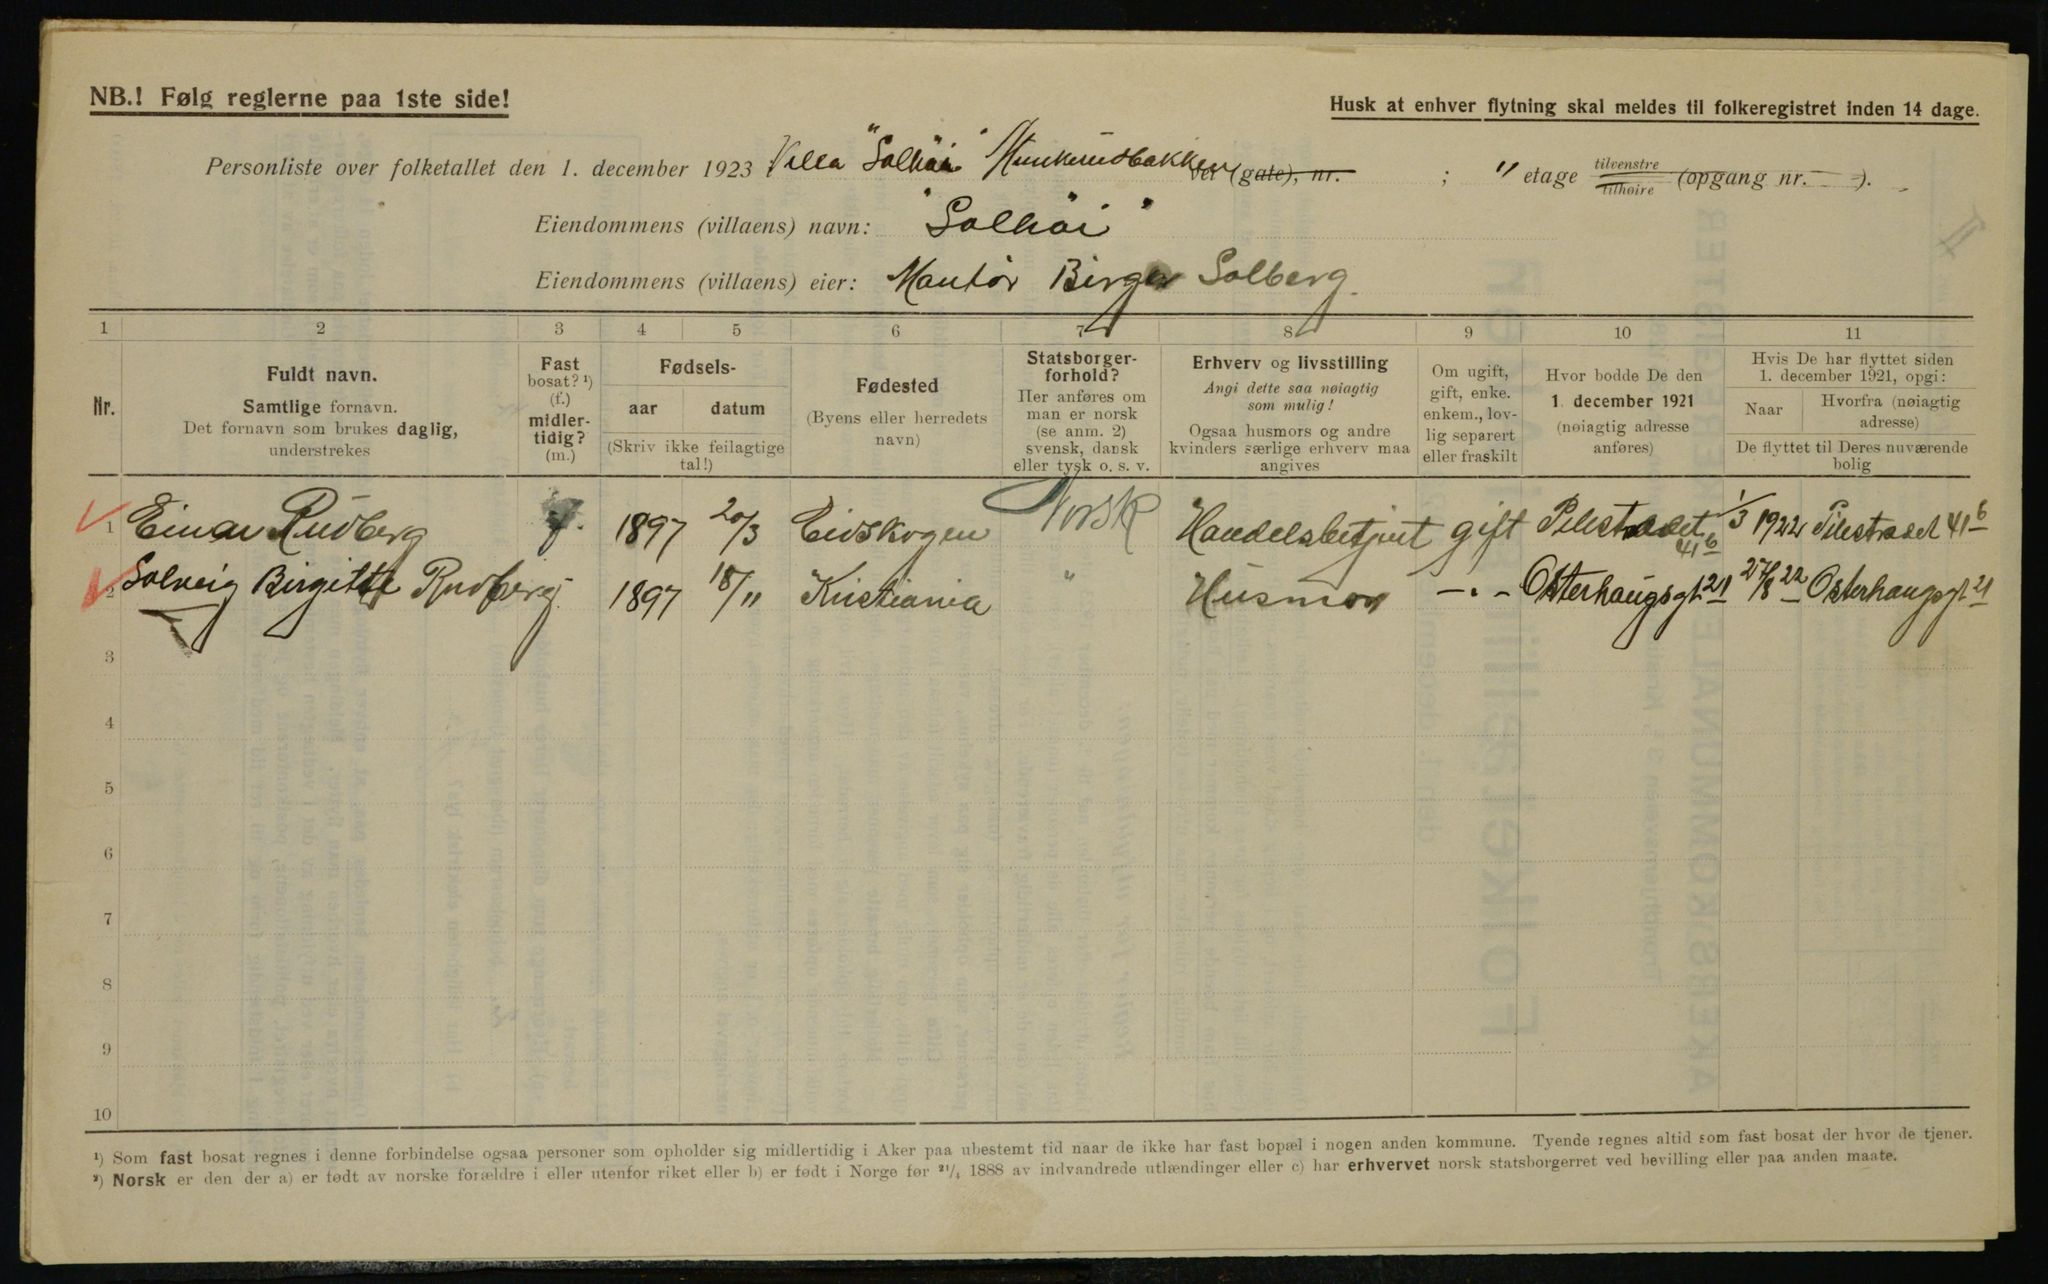 NB.! Følg reglerne paa 1ste side!
Husk at enhver flytning skal meldes til folkeregistret inden 14 dage.
Personliste over folketallet den 1. december 1923 Villa "Solhöi" vei (gate), nr. ; " etage tilvenstre tilhøire (opgang nr. ).
Eiendommens (villaens) navn: "Solhöi"
Eiendommens (villaens) eier: Birger Solberg.
1 2 3 4 5 6 7 8 9 10 11
Nr.
Fuldt navn.
Samtlige fornavn.
Det fornavn som brukes daglig,
understrekes
Fast
bosat? ¹)
(f.)
midler-
tidig?
(m.)
Fødsels-
aar datum
(Skriv ikke feilagtige
tal!)
Fødested
(Byens eller herredets
navn)
Statsborger-
forhold?
Her anføres om
man er norsk
(se anm. 2)
svensk, dansk
eller tysk o. s. v.
Erhverv og livsstilling
Angi dette saa nøiagtig
som mulig!
Ogsaa husmors og andre
kvinders særlige erhverv maa
angives
Om ugift,
gift, enke.
enkem., lov-
lig separert
eller fraskilt
Hvor bodde De den
1. december 1921
(nøiagtig adresse
anføres)
Hvis De har flyttet siden
1. december 1921, opgi:
Naar
Hvorfra (nøiagtig
adresse)
De flyttet til Deres nuværende
bolig
1 Einar Rudberg f. 1897 20/3 Eidskogen Norsk Handelsbetjent gift Pilestrædet 41 b 1/3 1922 Pilestrædet 41 b
2 Solveig Birgitte Rudberg 1897 18/11 Kristiania " Husmor -"- Osterhaugsgt. 21 27/8 22 Osterhaugsgt 21
3
4
5
6
7
8
9
10
¹) Som fast bosat regnes i denne forbindelse ogsaa personer som opholder sig midlertidig i Aker paa ubestemt tid naar de ikke har fast bopæl i nogen anden kommune. Tyende regnes altid som fast bosat der hvor de tjener.
²) Norsk er den der a) er født av norske forældre i eller utenfor riket eller b) er født i Norge før ²¹/₄ 1888 av indvandrede utlændinger eller c) har erhvervet norsk statsborgerret ved bevilling eller paa anden maate.